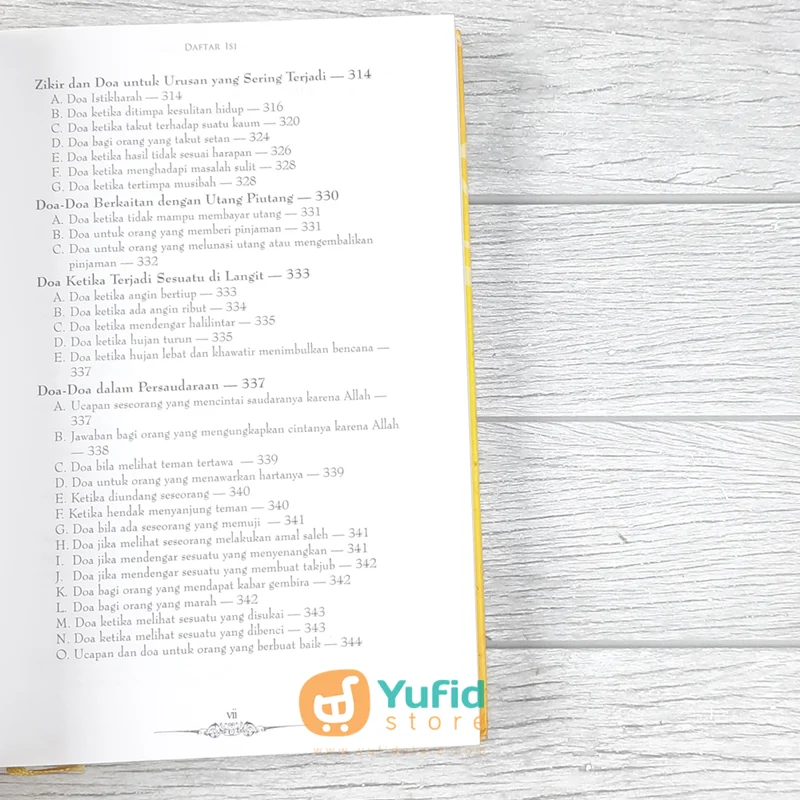 Daftar Isi
Zikir dan Doa untuk Urusan yang Sering Terjadi — 314
A. Doa Istikharah — 314
B. Doa ketika ditimpa kesulitan hidup — 316
C. Doa ketika takut terhadap suatu kaum — 320
D. Doa bagi orang yang takut setan — 324
E. Doa ketika hasil tidak sesuai harapan — 326
F. Doa ketika menghadapi masalah sulit — 328
G. Doa ketika tertimpa musibah — 328
Doa-Doa Berkaitan dengan Utang Piutang — 330
A. Doa ketika tidak mampu membayar utang — 331
B. Doa untuk orang yang memberi pinjaman — 331
C. Doa untuk orang yang melunasi utang atau mengembalikan
pinjaman — 332
Doa Ketika Terjadi Sesuatu di Langit — 333
A. Doa ketika angin bertiup — 333
B. Doa ketika ada angin ribut — 334
C. Doa ketika mendengar halilintar — 335
D. Doa ketika hujan turun — 335
E. Doa ketika hujan lebat dan khawatir menimbulkan bencana —
337
Doa-Doa dalam Persaudaraan — 337
A. Ucapan seseorang yang mencintai saudaranya karena Allah —
337
B. Jawaban bagi orang yang mengungkapkan cintanya karena Allah
— 338
C. Doa bila melihat teman tertawa — 339
D. Doa untuk orang yang menawarkan hartanya — 339
E. Ketika diundang seseorang — 340
F. Ketika hendak menyanjung teman — 340
G. Doa bila ada seseorang yang memuji — 341
H. Doa jika melihat seseorang melakukan amal saleh — 341
I. Doa jika mendengar sesuatu yang menyenangkan — 341
J. Doa jika mendengar sesuatu yang membuat takjub — 342
K. Doa bagi orang yang mendapat kabar gembira — 342
L. Doa bagi orang yang marah — 342
M. Doa ketika melihat sesuatu yang disukai — 343
N. Doa ketika melihat sesuatu yang dibenci — 343
O. Ucapan dan doa untuk orang yang berbuat baik — 344
vii
Yufid
store